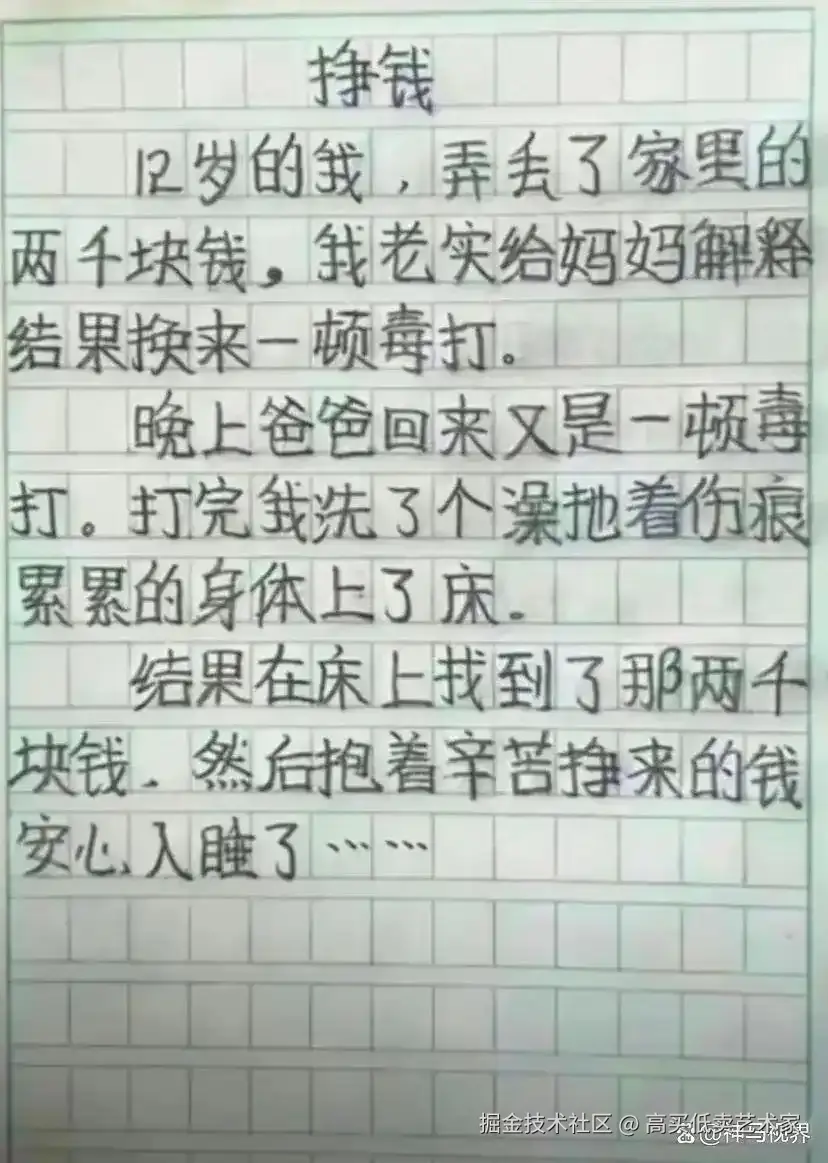 挣钱
12岁的我，弄丢了家里的
两千块钱，我老实给妈妈解释
结果换来一顿毒打。
晚上爸爸回来又是一顿毒
打。打完我洗了个澡拖着伤痕
累累的身体上了床.
结果在床上找到了那两千
块钱.然后抱着辛苦挣来的钱
安心入睡了……
掘金技术社区 @ 高买低卖艺术家
@神马视界